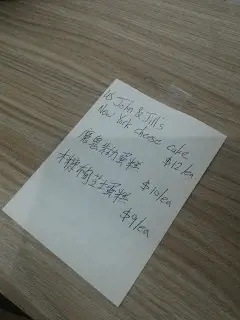 US John & Jill's
New York cheese cake
$12/ea
蛋糕
$10/ea
木糠芝士蛋糕
$9/ea